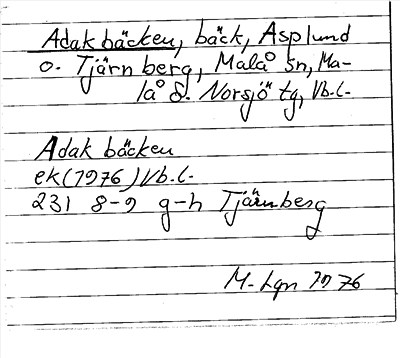 Adakbäcken, bäck, Asplund
o. Tjärnberg, Malå sn, Ma-
lå o. Norsjö tg, Vb.l.
Adakbäcken
ek (1976) Vb.l.
231 8-9 g-h Tjärnberg
M-Lgn 1976